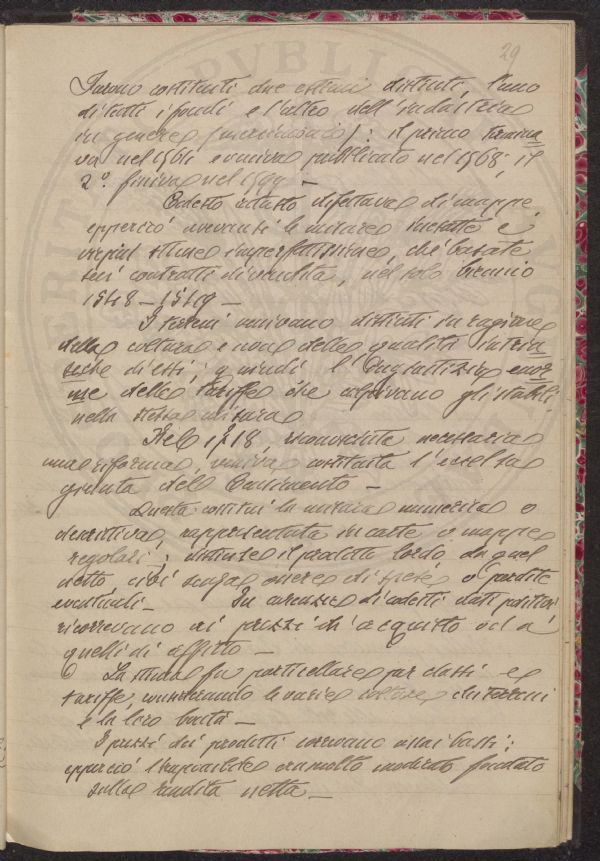 29
Furono costituiti due estimi distinti, l'uno
di tutti i fondi e l'altro dell'industria
in genere (mercimonio): il primo termina
va nel 1564 e veniva pubblicato nel 1568; il
2º finiva nel 1599 —
Codesto catasto difettava di mappe,
epperciò aveansi le misure inesatte e
stime imperfettissime, che basate
sui contratti di vendita, nel solo biennio
1548 — 1549 —
I terreni venivano distinti in ragione
della coltura e non delle qualità intrin
seche di essi; quindi l'ingiustizia enor
me delle tariffe che colpivano gli stabili
nella stessa misura
Nel 1718, riconosciuta necessaria
una riforma, veniva costituita l'eccelsa
giunta del Censimento —
Questa continuò la misura numerica o
descrittiva, rappresentata in carte o mappe
regolari; distinse il prodotto lordo da quel
netto, cioè scevro onere di spese o perdite
eventuali — In carenza di codesti dati positivi
ricorrevano ai prezzi di acquisto od a
quelli di affitto —
La stima fu particellare per classi e
tariffe, considerando le varie colture dei terreni
e la loro bontà —
I prezzi dei prodotti correvano assai bassi;
epperciò l'imponibile era molto moderato fondato
sulla rendita netta —